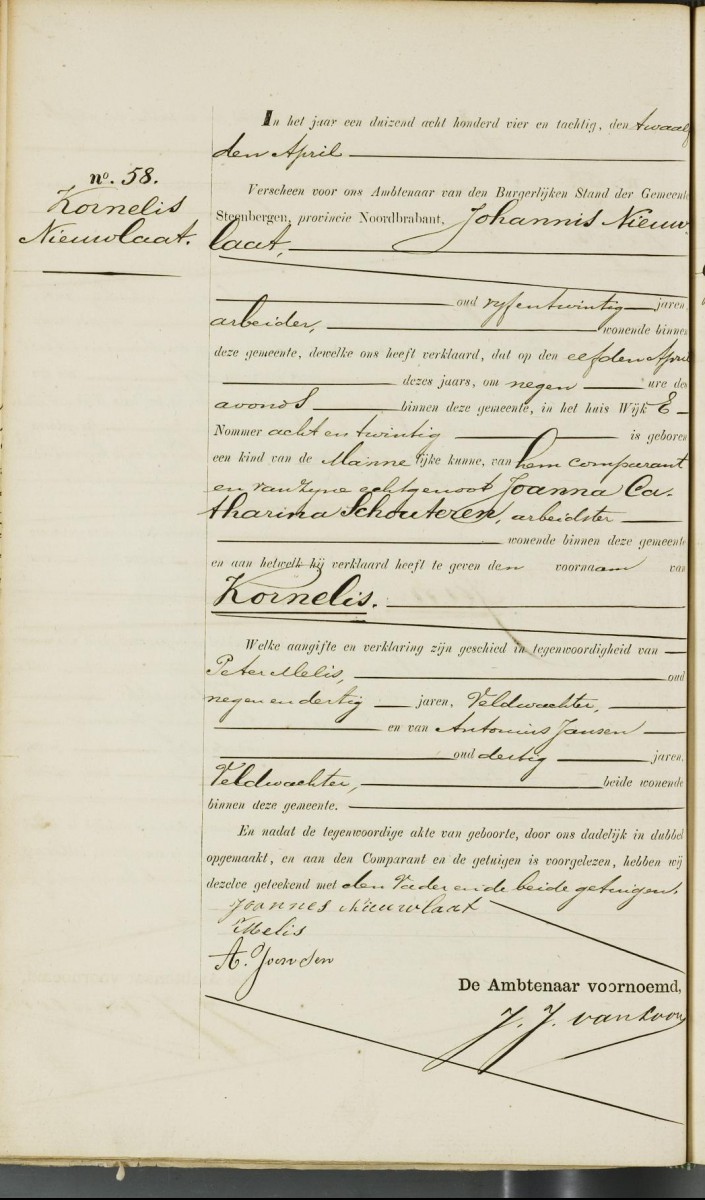 no. 58.
Kornelis
Nieuwlaat.
In het jaar een duizend acht honderd vier en tachtig, den twaalf
den April
Verscheen voor ons Ambtenaar van den Burgerlijken Stand der Gemeente
Steenbergen, provincie Noordbrabant, Johannis Nieuw
laat,
oud vyfentwintig jaren,
arbeider, wonende binnen
deze gemeente, dewelke ons heeft verklaard, dat op den elfden April
dezes jaars, om negen ure des
avonds binnen deze gemeente, in het huis Wijk E
Nommer acht en twintig is geboren
een kind van de Mannelijke kunne, van hem comparant
en van zyne echtgenoot Joanna Ca-
tharina Schouteren, arbeidster
wonende binnen deze gemeente
en aan hetwelk hij verklaard heeft te geven den voornaam van
Kornelis.
Welke aangifte en verklaring zijn geschied in tegenwoordigheid van
Peter Melis, oud
negen en dertig jaren, Veldwachter,
en van Antonius Jansen
oud dertig jaren,
Veldwachter, beide wonende
binnen deze gemeente.
En nadat de tegenwoordige akte van geboorte, door ons dadelijk in dubbel
opgemaakt, en aan den Comparant en de getuigen is voorgelezen, hebben wij
dezelve geteekend met den Vader en de beide getuigen.
Joannes Nieuwlaat
Melis
A. Jansen
De Ambtenaar voornoemd,
J. J. van Loon